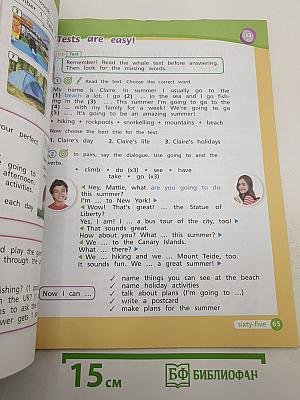 Tests are easy!
9
Test
Remember! Read the whole text before answering.
Then look for the missing words.
1 Read the text. Choose the correct word.
My name is Claire. In summer I usually go to the
(1) beach a lot. I go (2) ... in the sea and I go fish-
ing in the (3) ... . This summer I'm going to go to the
(4) ... with my family for a week! We're going to go
(5) ... . It's going to be an amazing summer!
• hiking • rockpools • snorkelling • mountains • beach
Now choose the best title for the text.
1. Claire's day 2. Claire's life 3. Claire's holidays
2 In pairs, say the dialogue. Use going to and the
verbs.
• climb • do (x3) • see • have
take • go (x3)
Hey, Mattie, what are you going to do
this summer?
I'm ... to New York!
Wow! That's great! ... the Statue of
Liberty?
Yes, I am! I ... a bus tour of the city, too!
That sounds great.
How about you? What ... this summer?
We ... to the Canary Islands.
What ... there?
We ... hiking and we ... Mount Teide, too.
It sounds fun. We ... a great summer!
Now I can ...
✓ name things you can see at the beach
✓ name holiday activities
✓ talk about plans (I'm going to ...)
✓ write a postcard
✓ make plans for the summer
sixty-five 65
your perfect
going to
afternoon.
activities.
each day
play the
through the
fishing? (1
the UK? (1
ns to ask the
wer gets 1
15 см
БФ БИБЛИОФАН